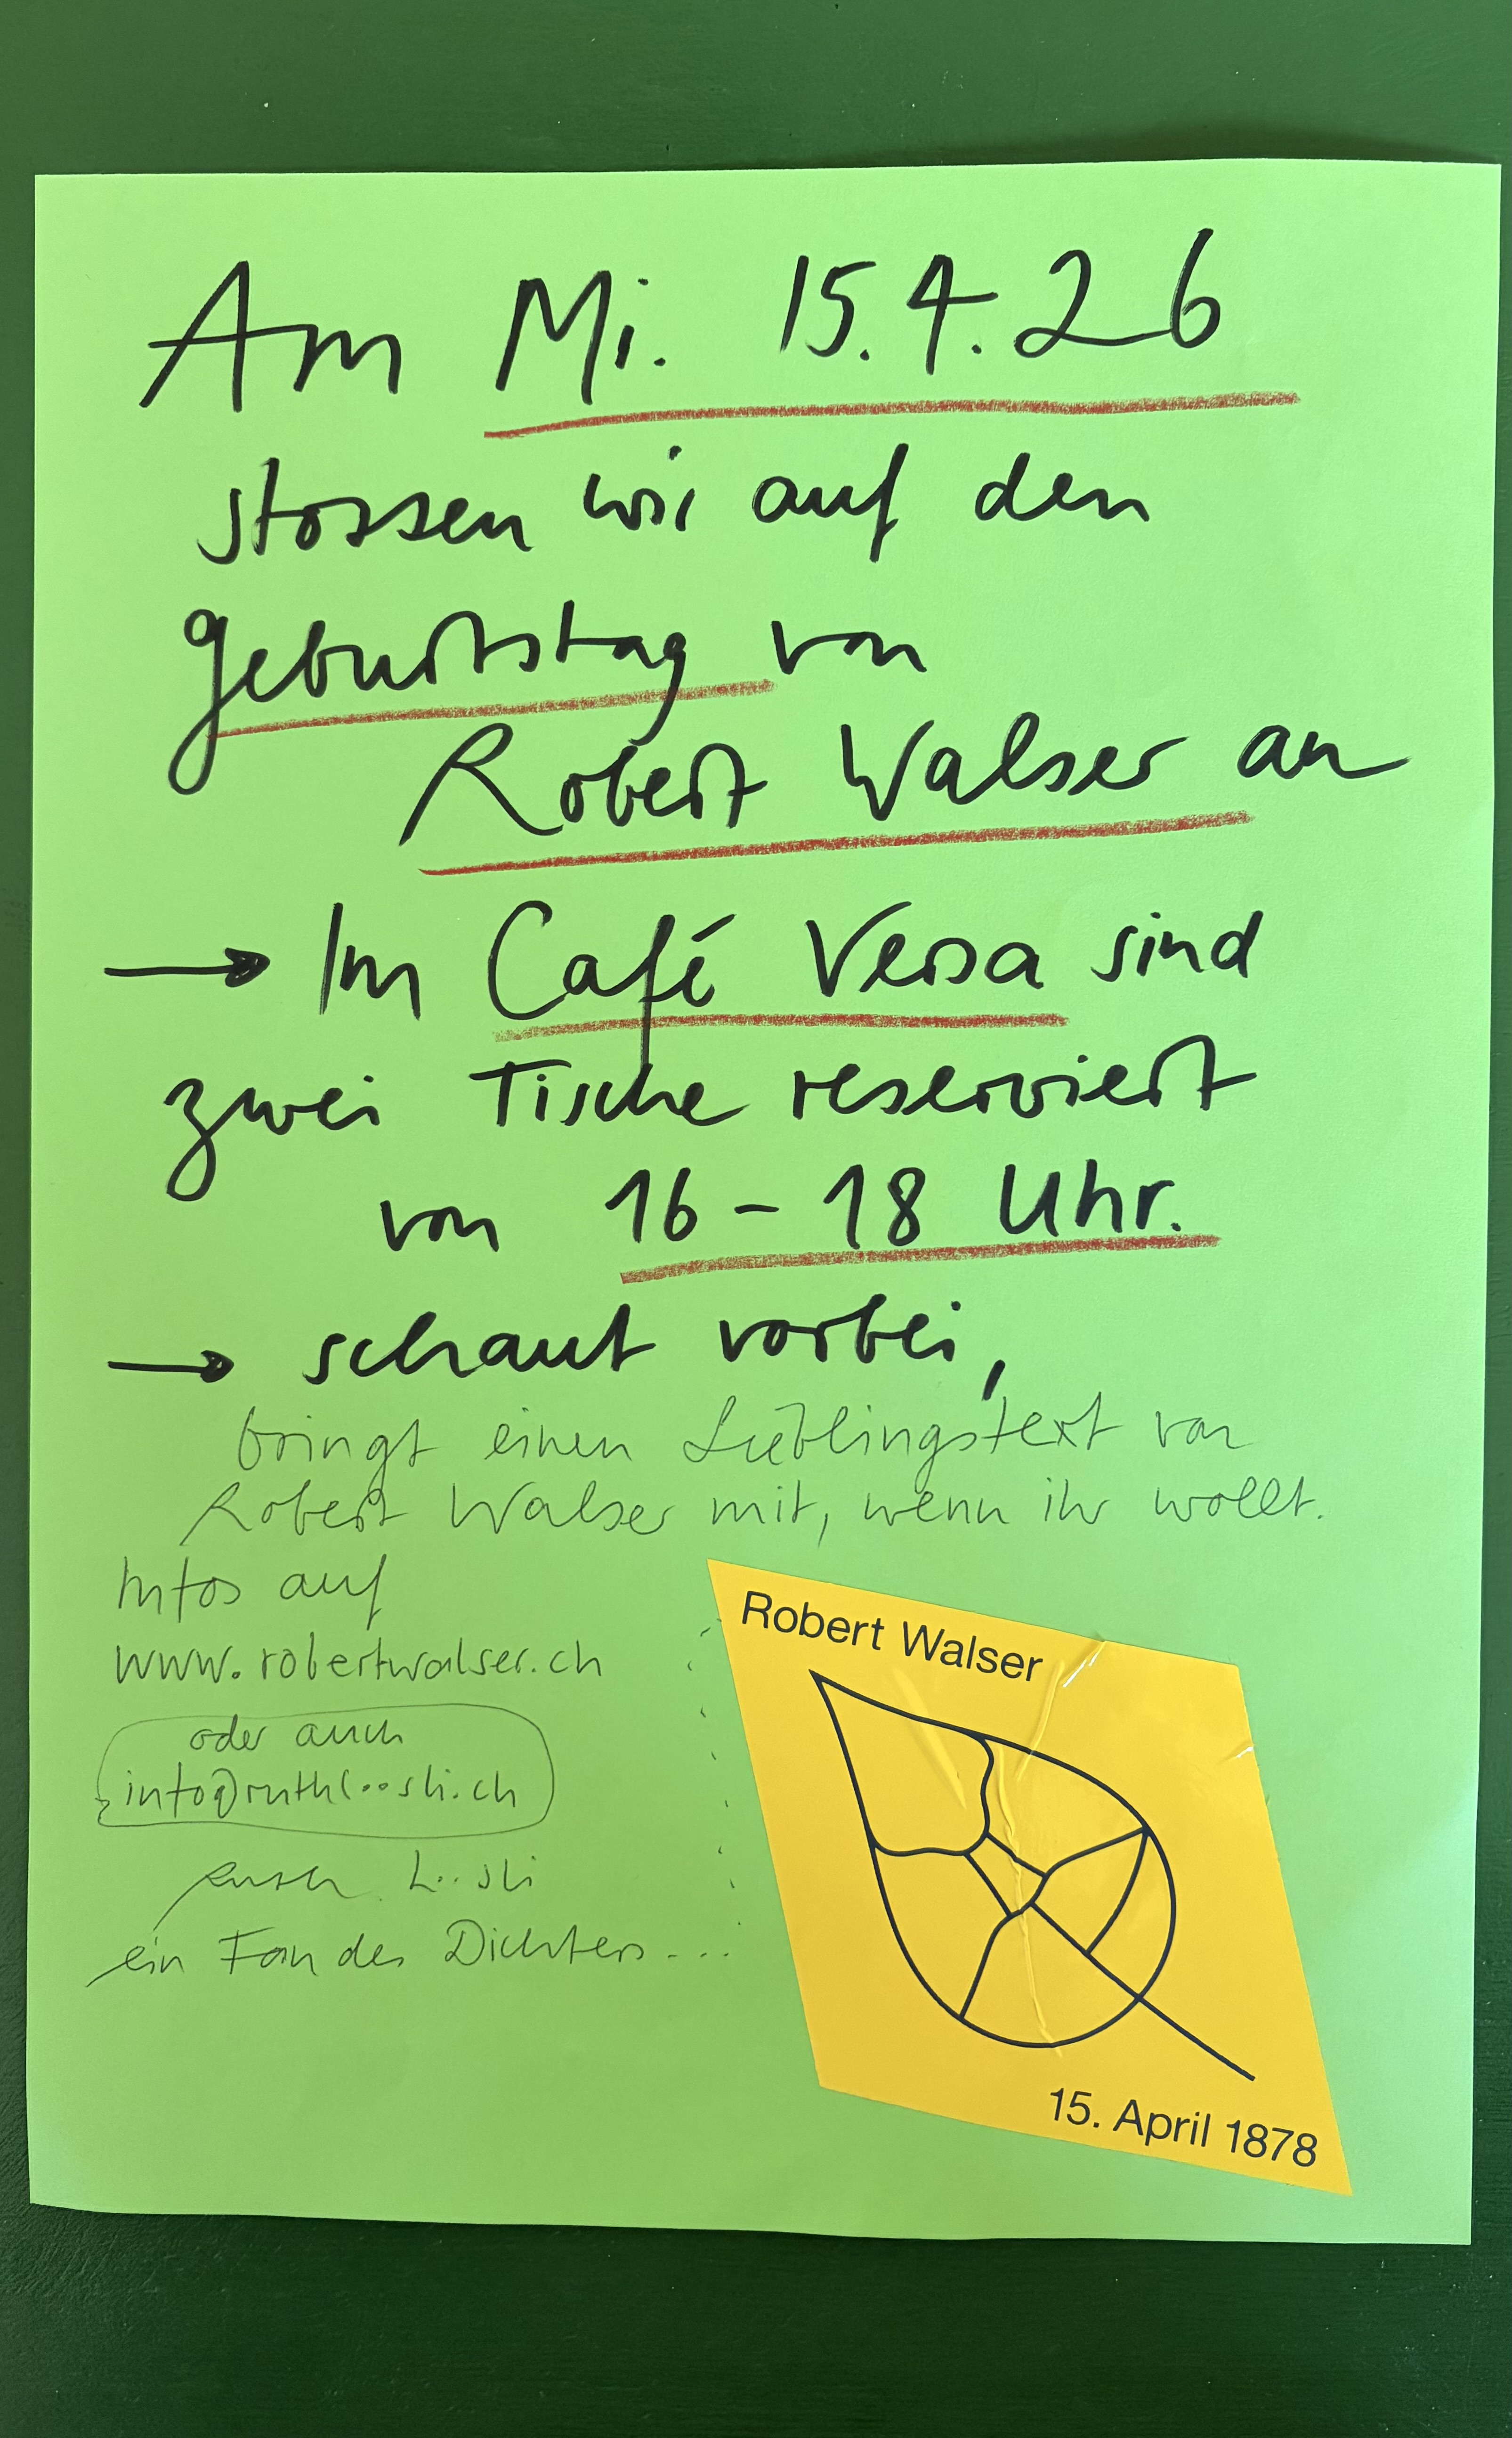 Am Mi. 15.4.26
stossen wir auf den
Geburtstag von
Robert Walser an
→ Im Café Versa sind
zwei Tische reserviert
von 16 - 18 Uhr.
→ schaut vorbei,
bringt einen Lieblingstext von
Robert Walser mit, wenn ihr wollt.
Infos auf
www.robertwalser.ch
oder auch
info@ruthloosli.ch
Ruth Loosli
ein Fan des Dichters...
Robert Walser
15. April 1878